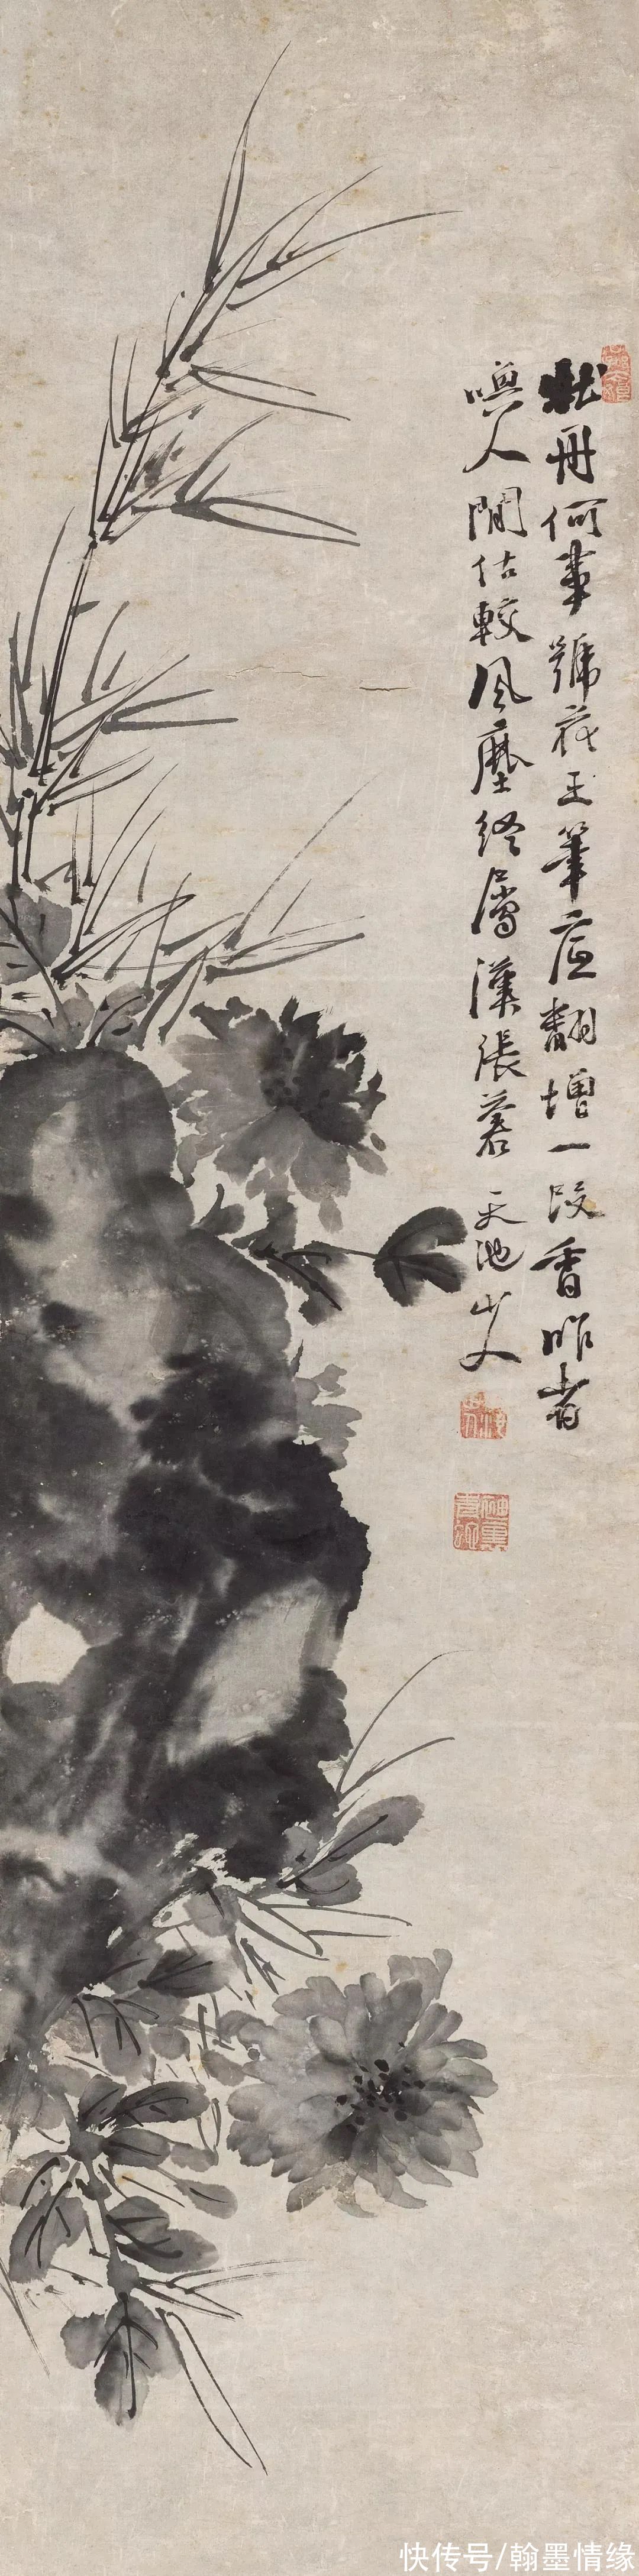 牡丹何事號花王筆底翻增一段香昨者
喚人閒估較風塵終屬漢張蒼 天池山人
快传号/翰墨情缘